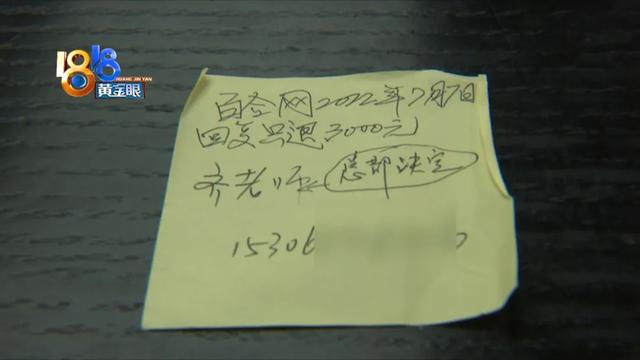 1818
HUANG JIN YAN
黄金眼
百合网2022年7月7日
回复只退3000元
齐老师 总部决定
15306